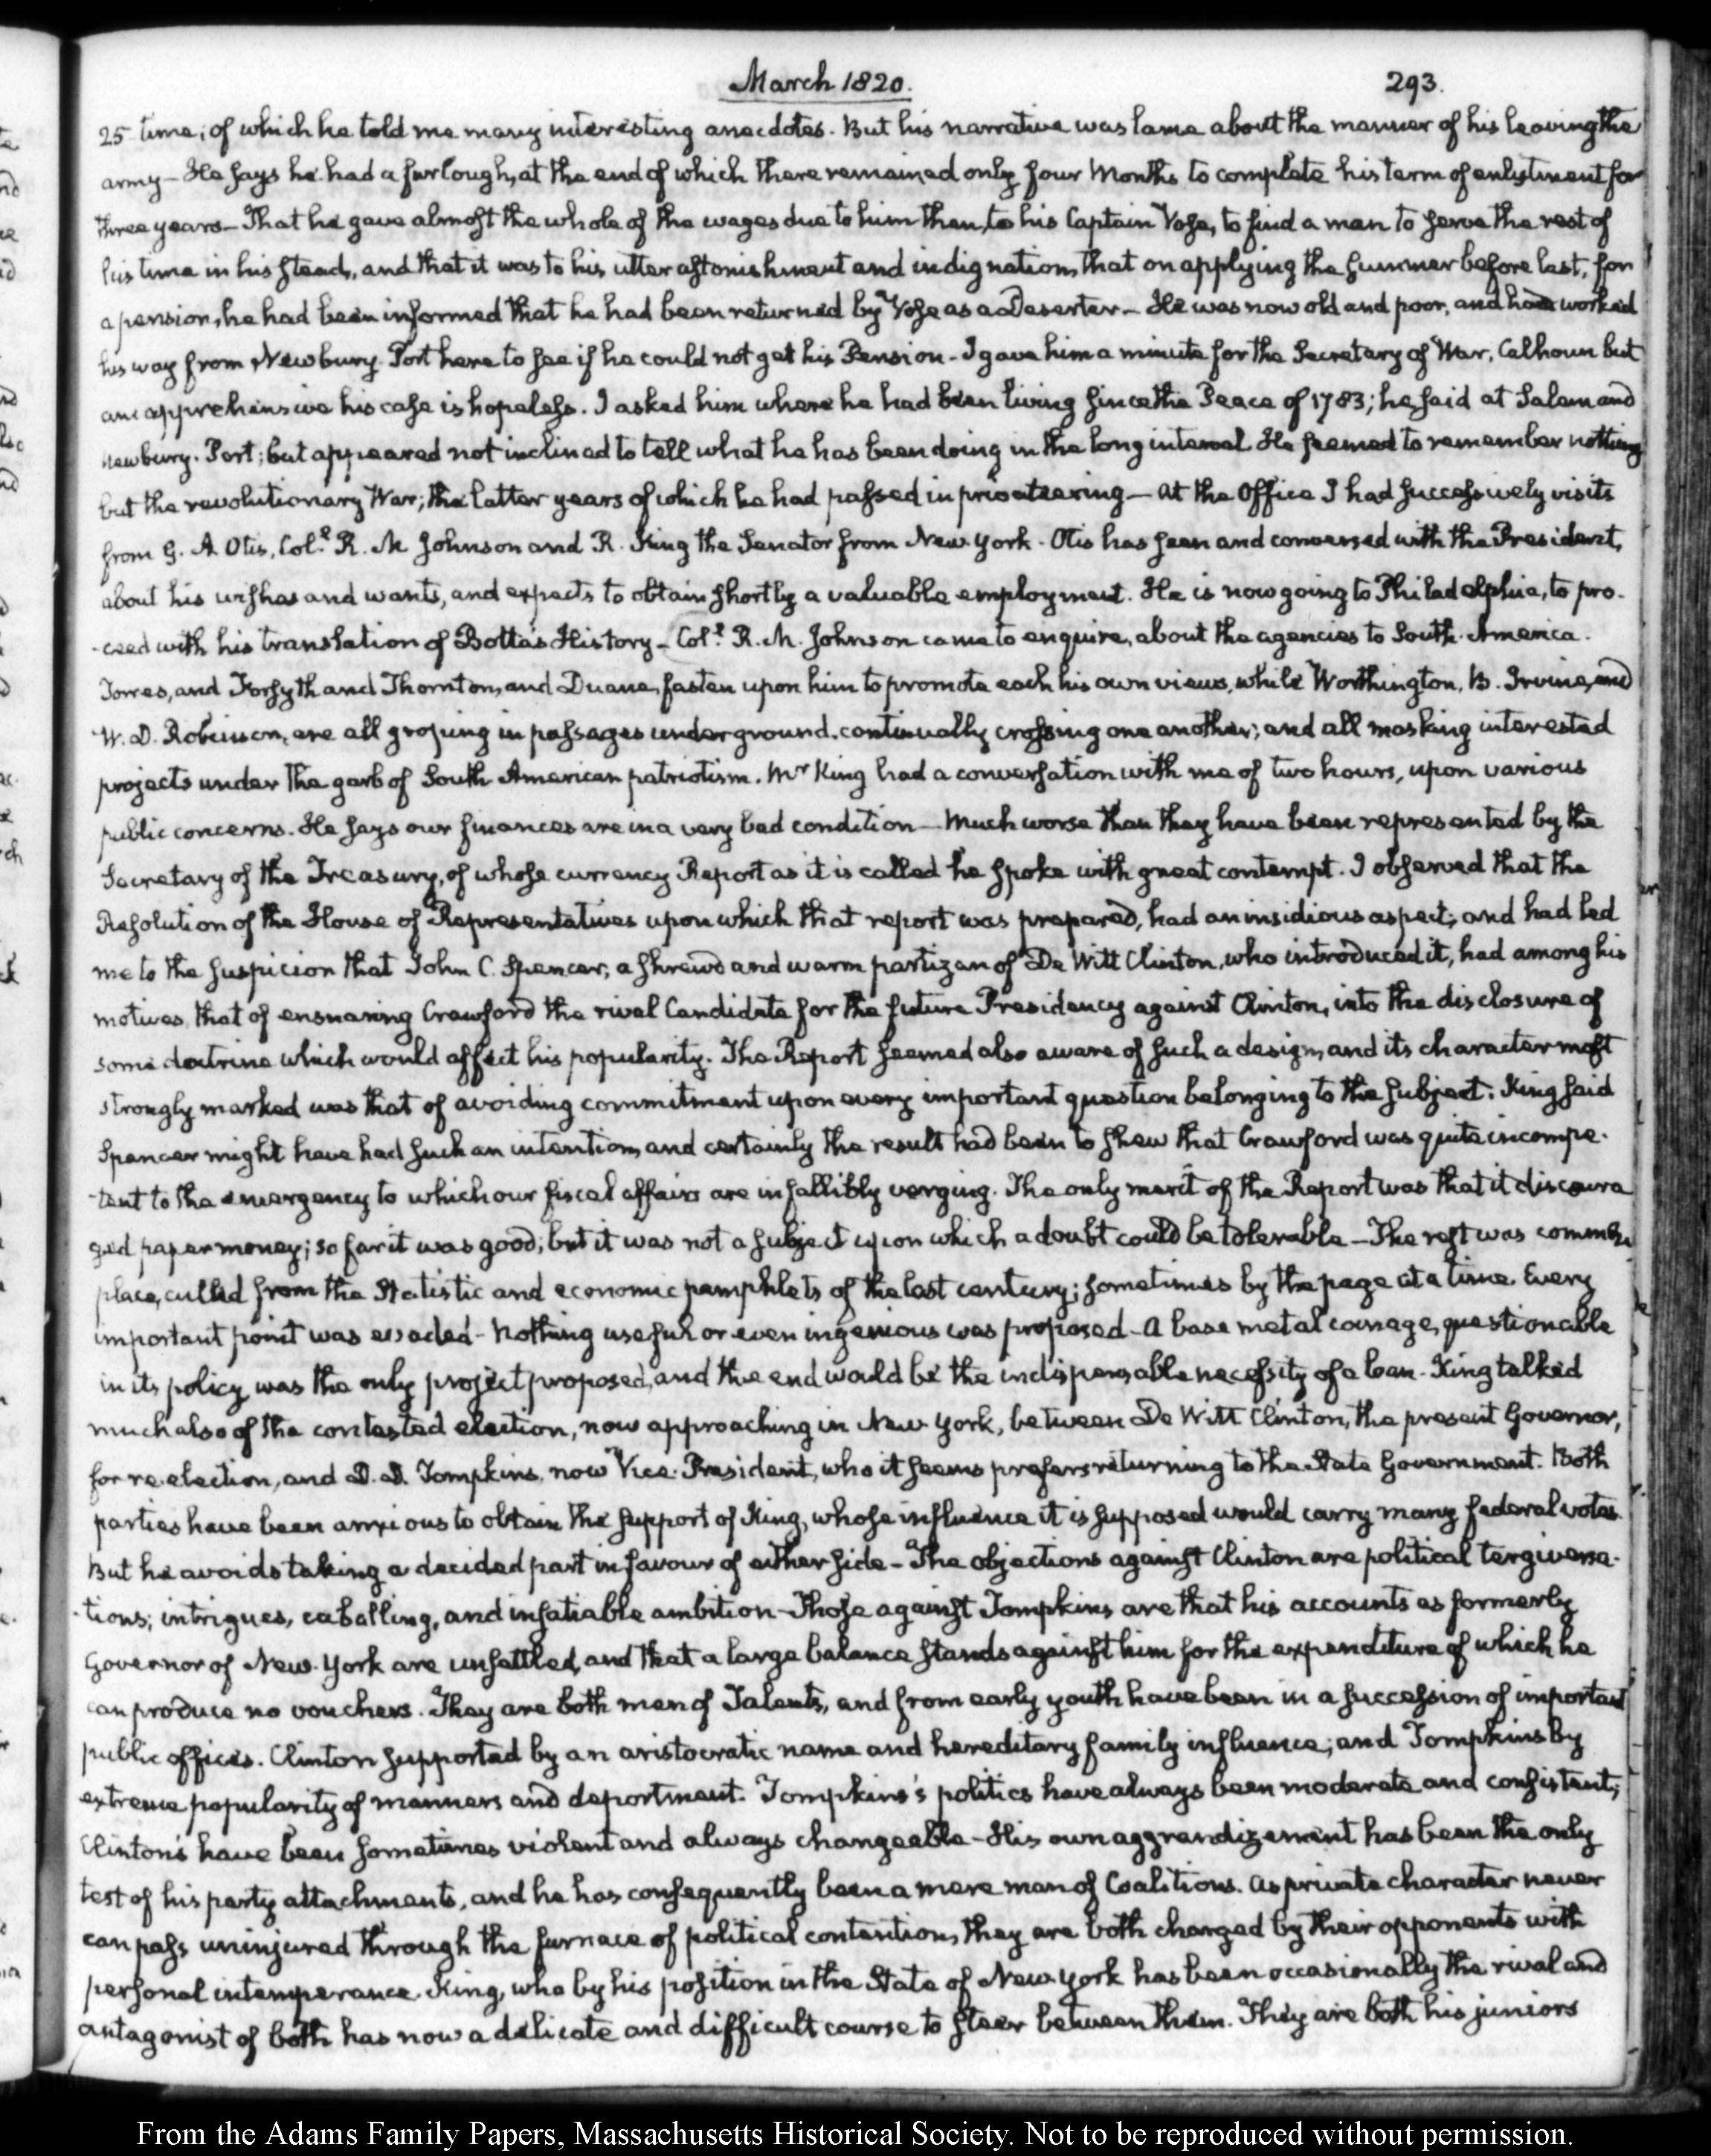 March 1820.
293.
25 time; of which he told me many interesting anecdotes. But his narrative was lame about the manner of his leaving the
army— He says he had a furlough, at the end of which there remained only four Months to complete his term of enlistment for
three years— That he gave almost the whole of the wages due to him then, to his Captain Vose, to find a man to serve the rest of
his time in his stead, and that it was to his utter astonishment and indignation, that on applying the summer before last, for
a pension, he had been informed that he had been returned by Vose as a Deserter— He was now old and poor, and had worked
his way from Newbury-Port here to see if he could not get his Pension— I gave him a minute for the Secretary of War, Calhoun but
am apprehensive his case is hopeless. I asked him where he had been living since the Peace of 1783; he said at Salem and
Newbury-Port; but appeared not inclined to tell what he has been doing in the long interval. He seemed to remember nothing
but the revolutionary War; the latter years of which he had passed in privateering— At the Office I had successively visits
from G. A. Otis, Coll. R. M Johnson and R. King the Senator from New-York— Otis has seen and conversed with the President,
about his wishes and wants, and expects to obtain shortly a valuable employment. He is now going to Philadelphia, to pro-
-ceed with his translation of Botta's History— Coll. R. M. Johnson came to enquire, about the agencies to South-America.
Torres, and Forsyth and Thornton, and Duane, fasten upon him to promote each his own views, while Worthington, B. Irvine, and
W. D. Robinson, are all groping in passages underground, continually crossing one another; and all masking interested
projects under the garb of South American patriotism. Mr King had a conversation with me of two hours, upon various
public concerns. He says our finances are in a very bad condition— Much worse than they have been represented by the
Secretary of the Treasury, of whose currency Report as it is called he spoke with great contempt. I observed that the
Resolution of the House of Representatives upon which that report was prepared, had an insidious aspect; and had led
me to the suspicion that John C. Spencer, a shrewd and warm partizan of De Witt Clinton, who introduced it, had among his
motives, that of ensnaring Crawford the rival Candidate for the future Presidency against Clinton, into the disclosure of
some doctrine which would affect his popularity. The Report seemed also aware of such a design, and its character most
strongly marked was that of avoiding commitment upon every important question belonging to the subject. King said
Spencer might have had such an intention, and certainly the result had been to shew that Crawford was quite incompe-
-tent to the emergency to which our fiscal affairs are infallibly verging. The only merit of the Report was that it discoura
ged paper money; so far it was good; but it was not a subject upon which a doubt could be tolerable— The rest was common
place, culled from the Statistic and economic pamphlets of the last century; sometimes by the page at a time. Every
important point was evaded— Nothing useful or even ingenious was proposed— A base metal coinage, questionable
in its policy was the only project proposed, and the end would be the indispensable necessity of a loan. King talked
much also of the contested election, now approaching in New York, between De Witt Clinton, the present Governor,
for re-election, and D. D. Tompkins, now Vice-President, who it seems prefers returning to the State Government. Both
parties have been anxious to obtain the support of King, whose influence it is supposed would carry many federal votes.
But he avoids taking a decided part in favour of either side— The objections against Clinton are political tergiversa-
-tions; intrigues, caballing, and insatiable ambition— Those against Tompkins are that his accounts as formerly
Governor of New-York are unsettled, and that a large balance stands against him for the expenditure of which he
can produce no vouchers. They are both men of Talents, and from early youth have been in a succession of important
public offices. Clinton supported by an aristocratic name and hereditary family influence; and Tompkins by
extreme popularity of manners and deportment. Tompkins's politics have always been moderate and consistent;
Clinton's have been sometimes violent and always changeable— His own aggrandizement has been the only
test of his party attachments, and he has consequently been a mere man of Coalitions. As private character never
can pass uninjured through the furnace of political contention, they are both charged by their opponents with
personal intemperance. King, who by his position in the State of New-York has been occasionally the rival and
antagonist of both has now a delicate and difficult course to steer between them. They are both his juniors
From the Adams Family Papers, Massachusetts Historical Society. Not to be reproduced without permission.